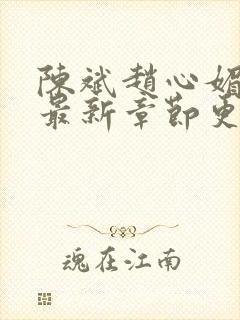 陳斌趙心媚
最新章節更
魂在江南